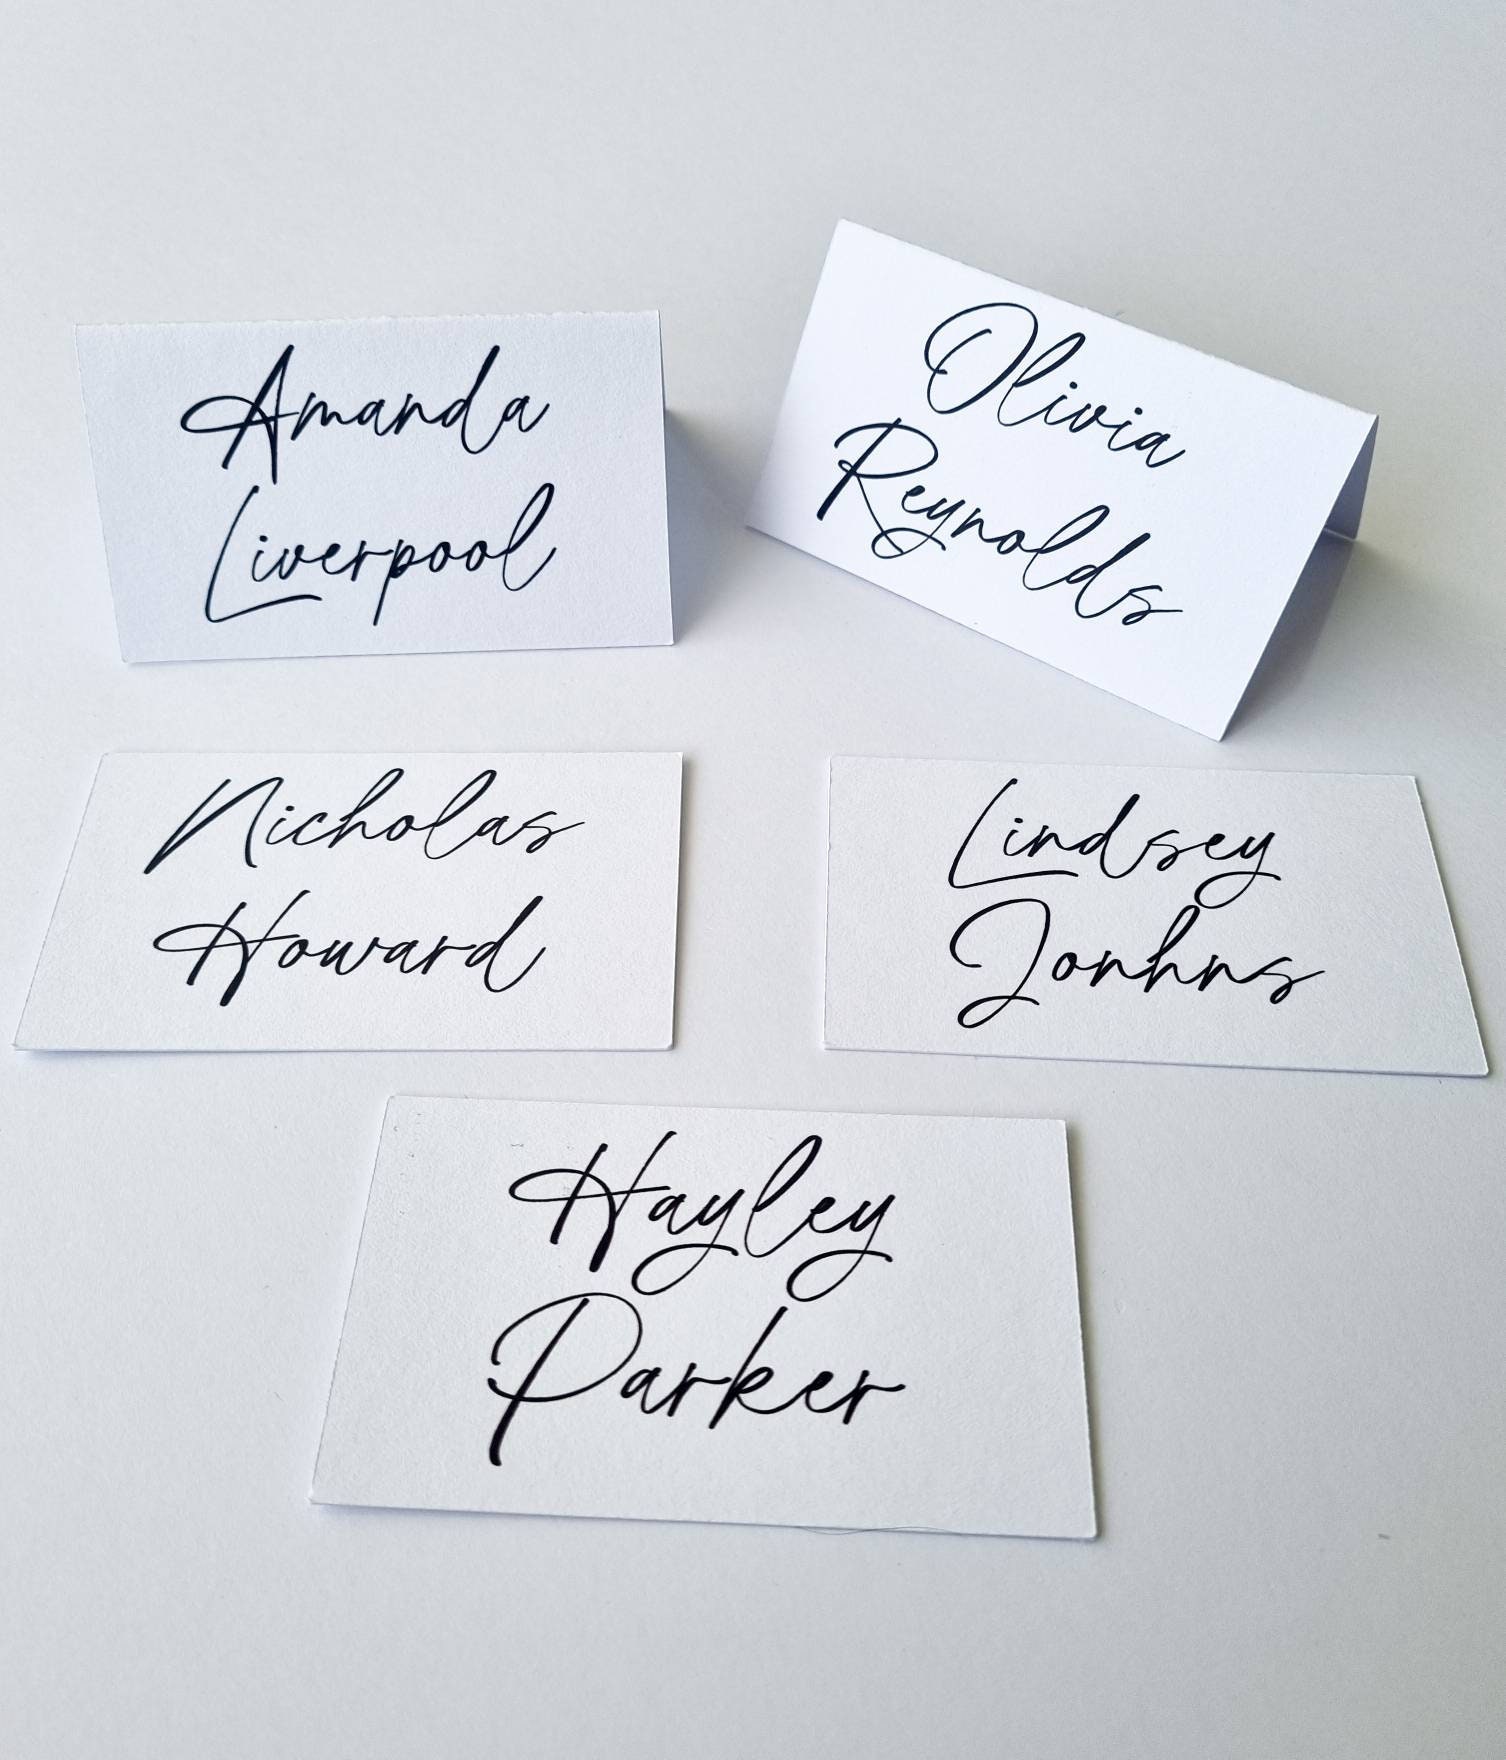 Amanda
Liverpool
Olivia
Reynolds
Nicholas
Howard
Lindsey
Jonhns
Hayley
Parker